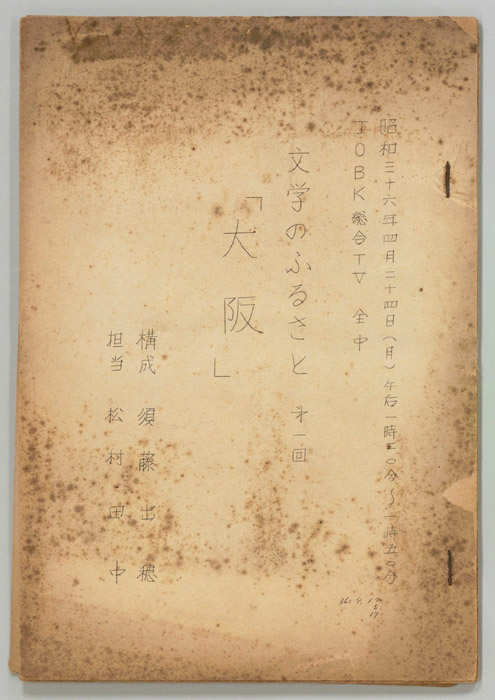 昭和三十六年四月二十四日（月）午后一時二〇分～一時五〇分
JOBK総合TV 全中
文学のふるさと 第一回
「大阪」
構成 須藤出穂
担当 松村・田中